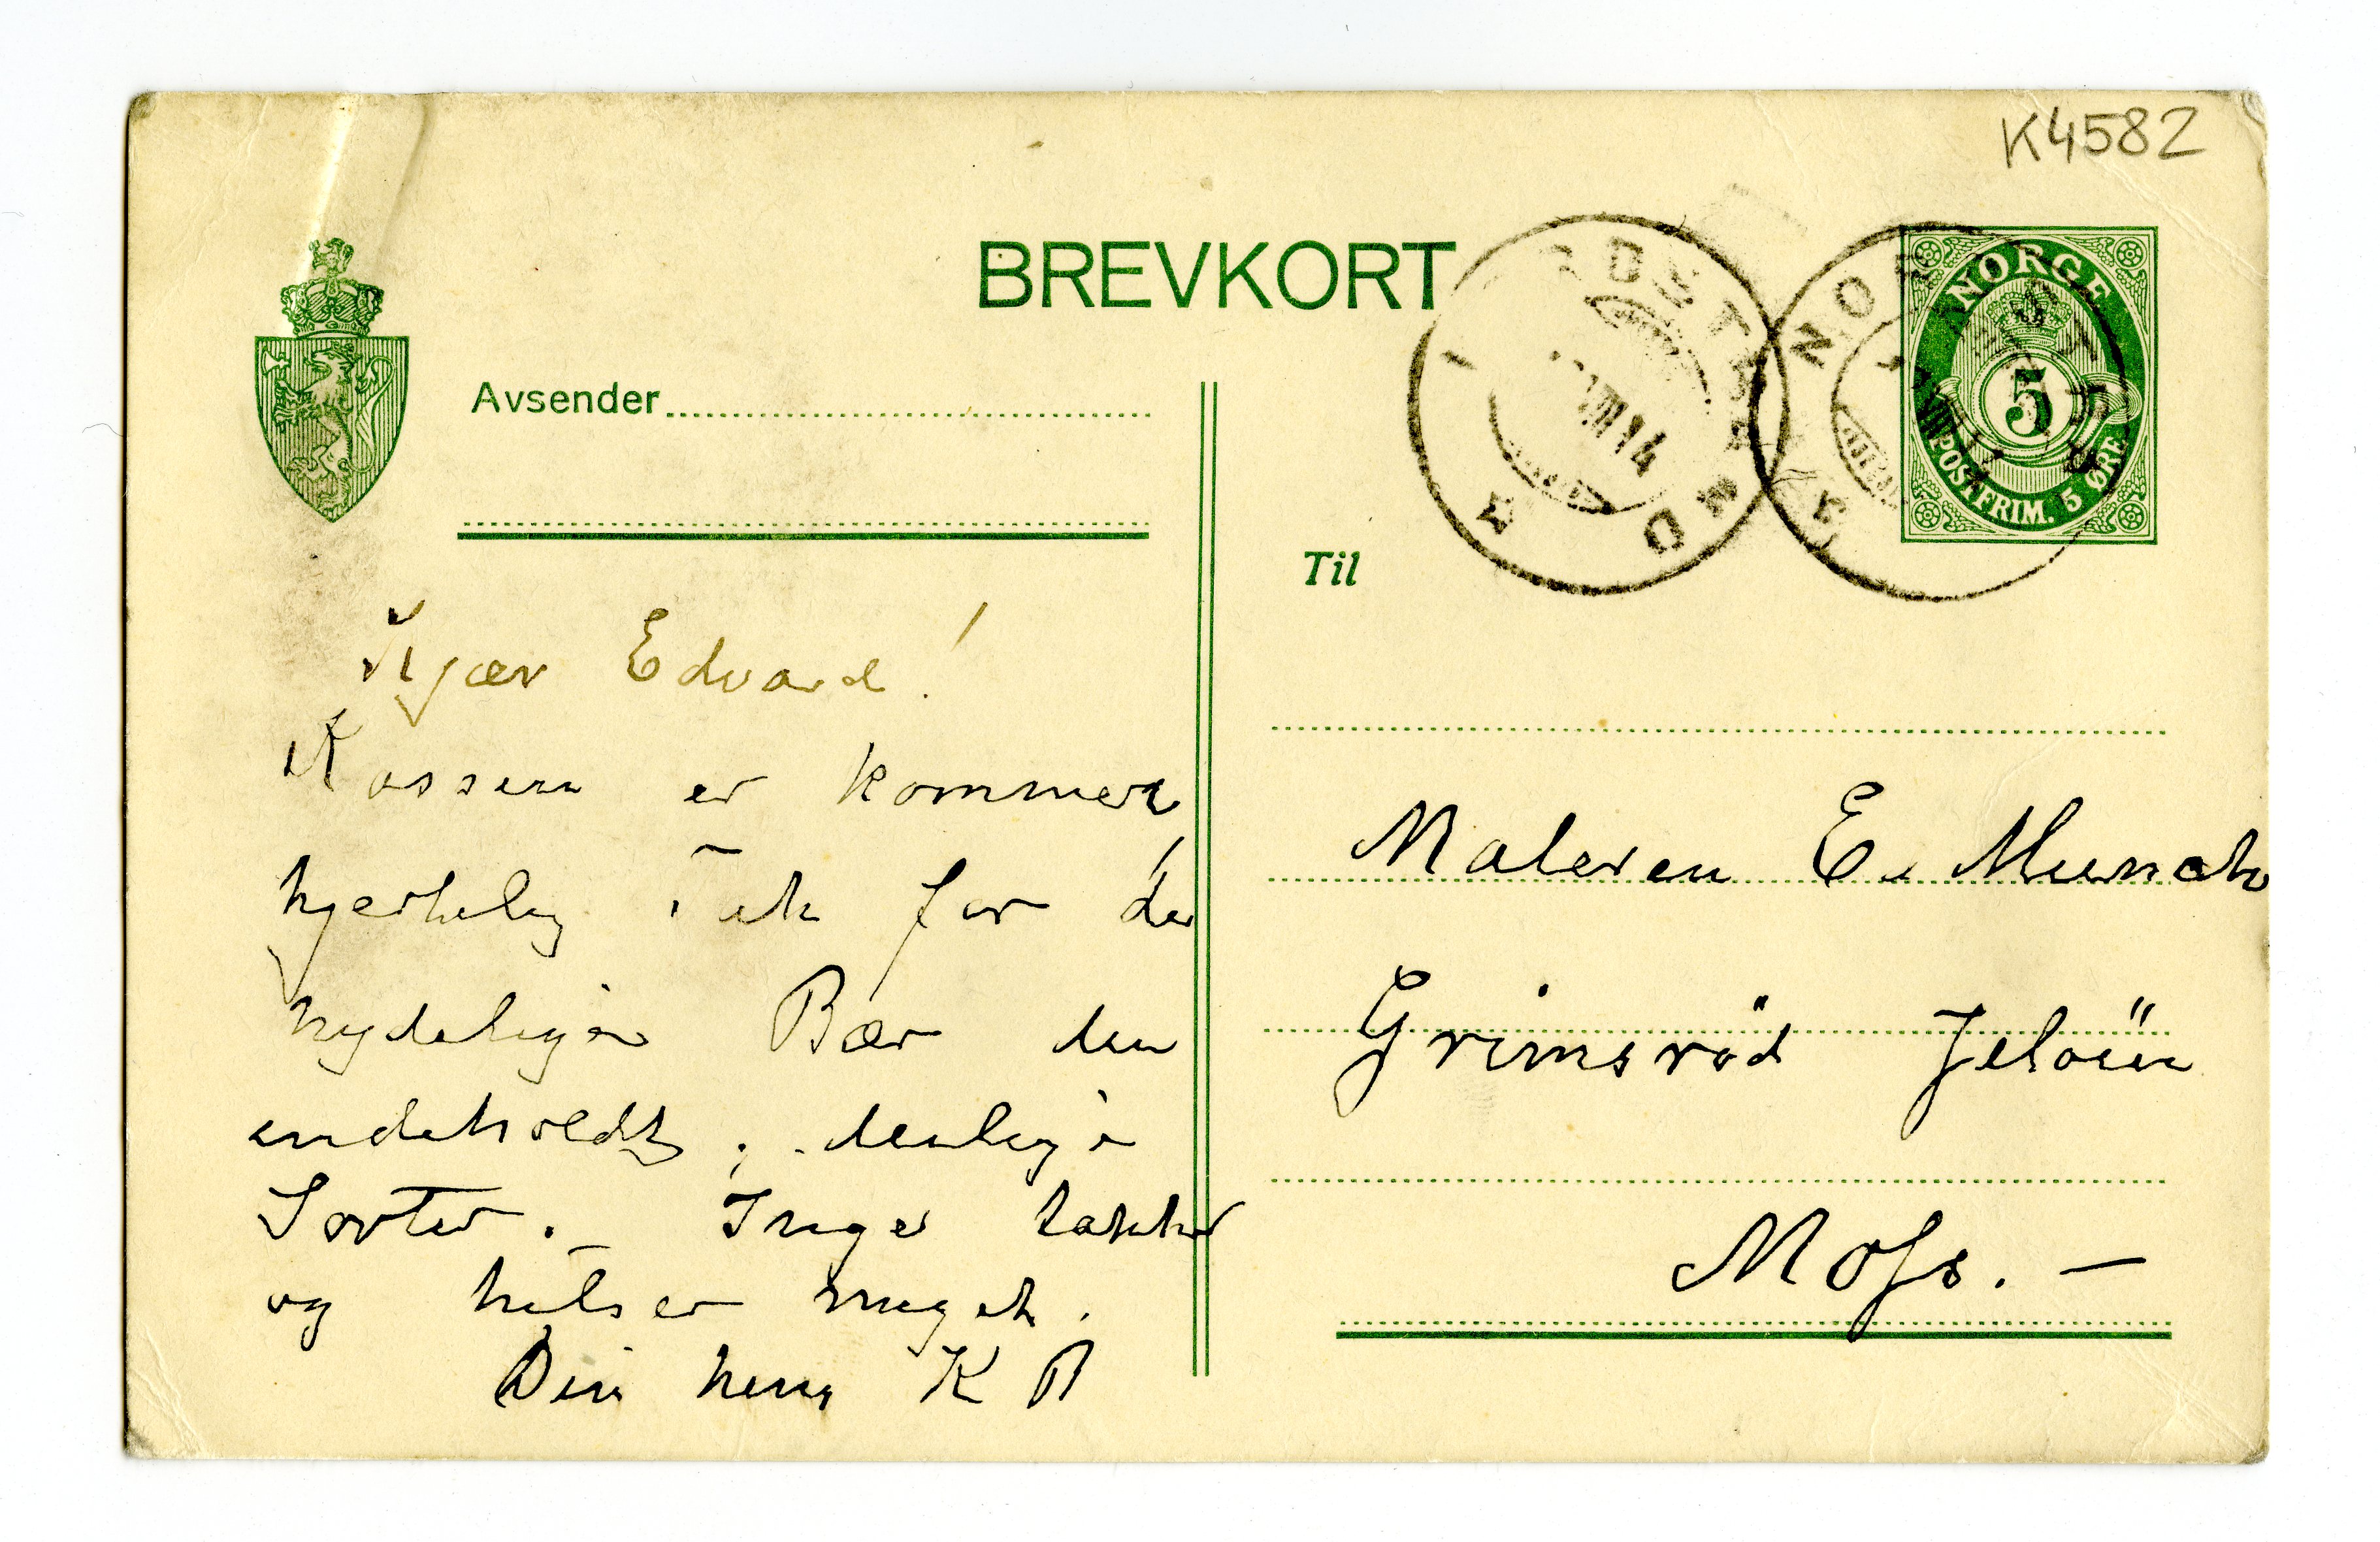 K4582
BREVKORT
NORGE
5
POSTFRIM. 5 ØRE
NORDSTRAND
VIII 14
Avsender
Til
Kjær Edvard!
Kassen er kommen
hjertelig Tak for de
nydelige Bær den
indeholdt, deilige
Sorter. Inger takker
og hilser meget.
Din heng K B
Maleren E. Munch
Grimsröd Jelöen
Moss. —